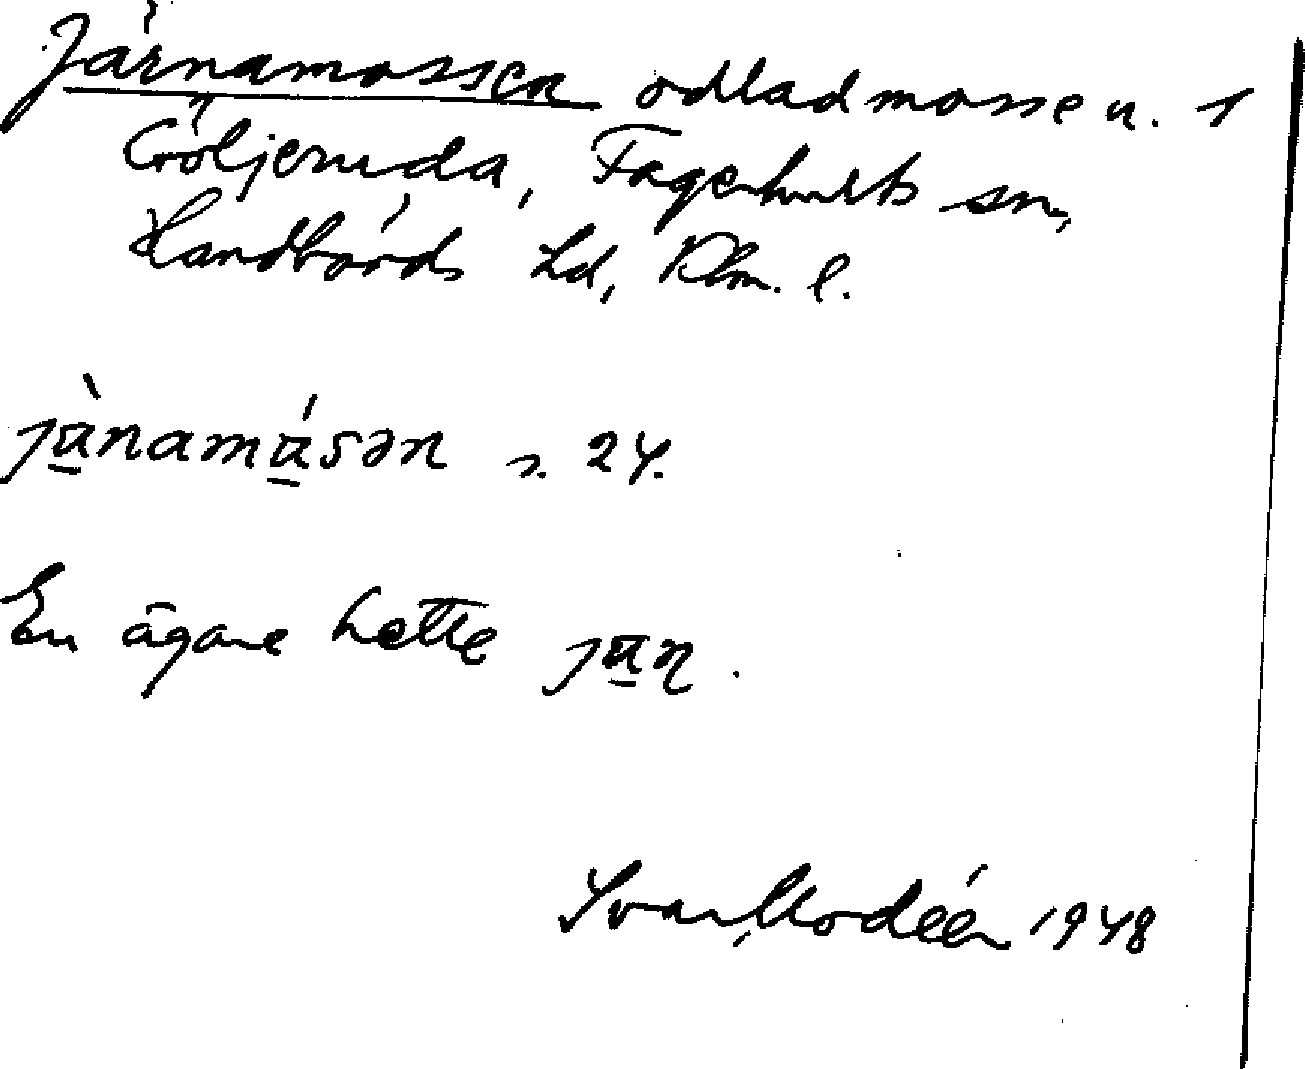 Järnamossen odlad mosse u. 1
Göljeruda, Fagerhults sn,
Handbörds hd, Klm. l.
jànamásən s. 24.
En ägare hette jaɳ.
Ivar Modéer 1948